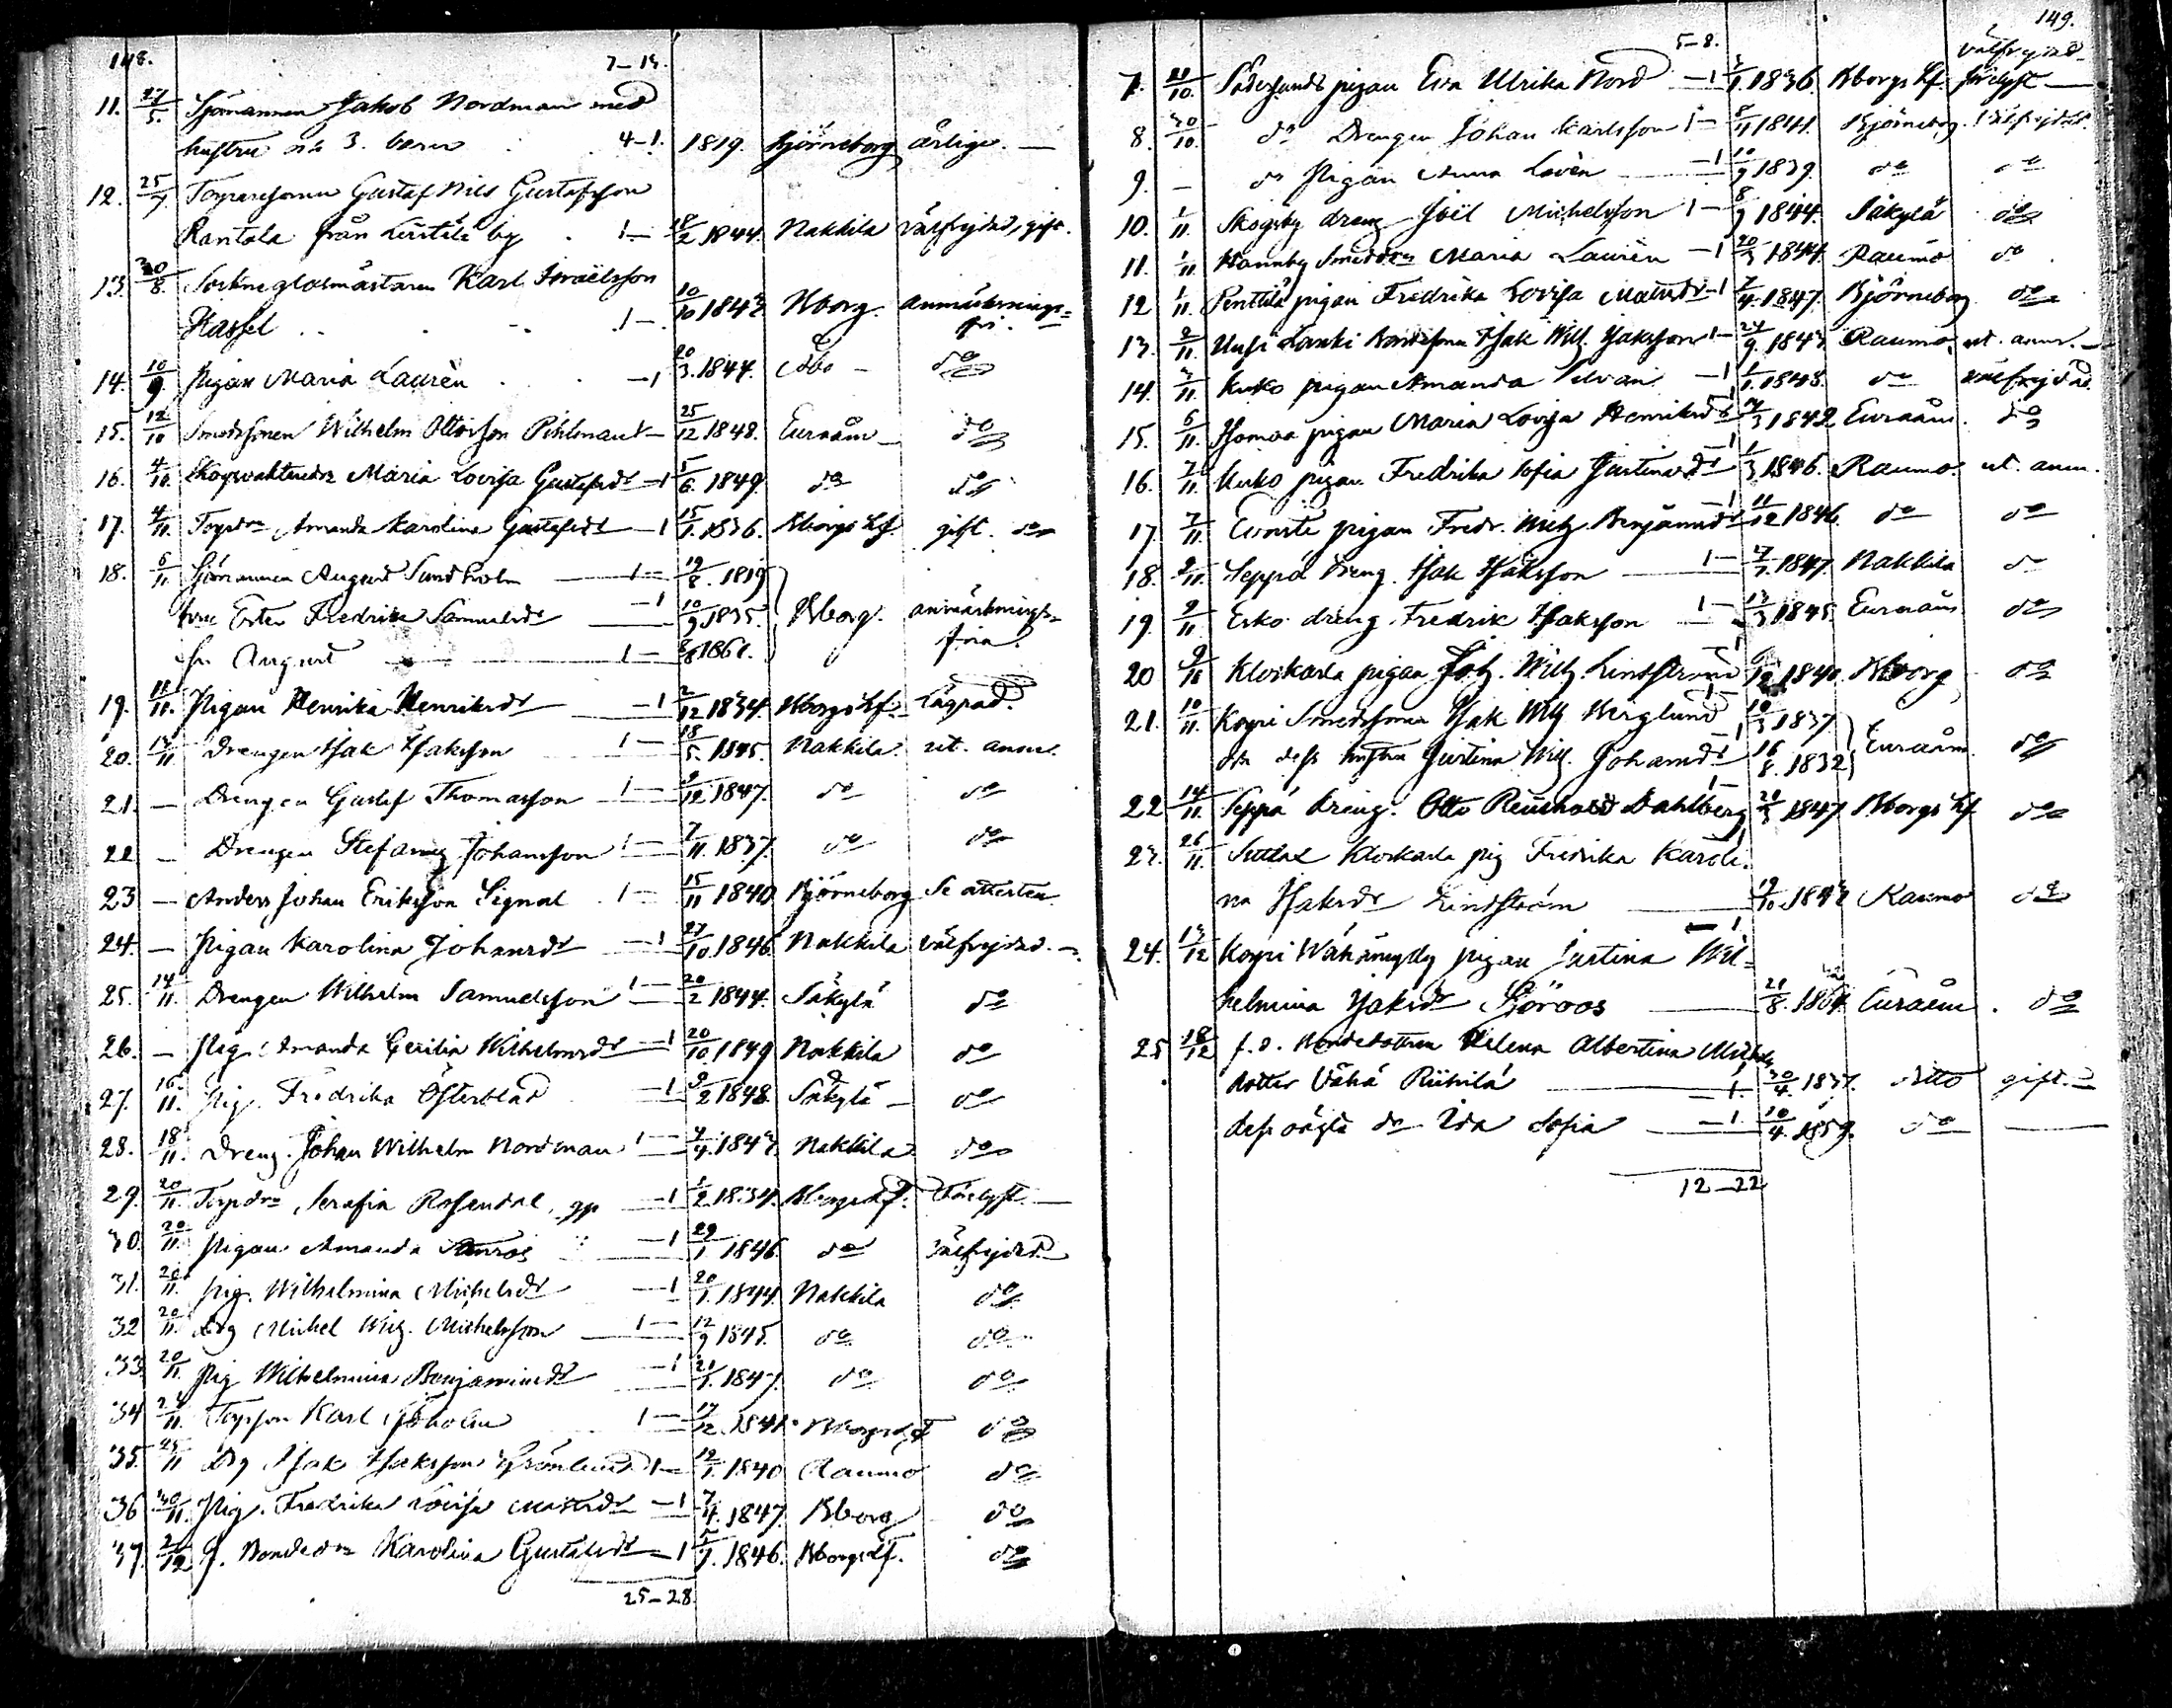 148.
7-14.
11. 27/5. Sjömannen Jakob Nordman med
hustru och 3. barn 4-1. 1819. Björneborg ärlige. —
12. 25/7 Torparesonen Gustaf Nils Gustafsson
Rantala från Leistilä by 1- 18/2 1844. Nakkila välfrejdad, gift.
13. 20/8. Sockneglasmästaren Karl Israëlsson
Kassel 1-. 10/10 1843 Bborg. anmärknings=
fri.
14. 10/9. Pigan Maria Laurèn -1 20/3. 1844. Åbo - do
15. 12/10 Smedssonen Wilhelm Ottosson Pihlman 1- 25/12 1848. Euraåm — do
16. 4/10. Skogvaktaredr Maria Lovisa Gustafsdr -1 5/6. 1849. do do
17. 4/11. Torpdr Amanda Karolina Gustafsdr -1 15/1. 1836. Bborgs Lf. gift. do
18. 6/11 Sjömannen August Sundholm 1- 19/8. 1819
hru Ester Fredrika Samuelsdr -1 10/9 1835. Bborg. anmärknings-
fria.
sn August 1- 2/8 186
19. 11/11. Pigan Henrika Henriksdr -1 2/12 1834. Bborgs Lf.
20. 14/11 Drengen Isak Isaksson 1- 18/5. 1845. Nakkila. ut. anm.
21. — Drengen Gustaf Thomasson 1- 9/12 1847. do do
22 — Drengen Stefanus Johansson 1- 7/11. 1837. do do
23 — Anders Johan Eriksson Signal 1- 15/11 1840 Björneborg Se attesten
24. — Pigan Karolina Johansdr -1 27/10. 1846. Nakkila välfrejdad. -
25. 14/11. Drengen Wilhelm Samuelsson 1- 20/2 1844. Säkylä do
26. — Pig. Amanda Cecilia Wilhelmsdr -1 20/10 1849 Nakkila do
27. 16/11. Pig. Fredrika Österblad -1 9/2 1848. Säkylä — do
28. 18/11. Dreng. Johan Wilhelm Nordman 1- 4/4. 1843. Nakkila do
29. 20/11. Torpdr Serafia Rosendal, -1 1/2 1834. Bborgs Lf.
30. 20/11. Pigan Amanda -1 29/1 1846 do välfrejdad
31. 20/11. Pig. Wilhelmina Michelsdr -1 20/1. 1844. Nakkila do
32 20/11. Drg Michel Wilh. Michelsson 1- 12/9 1845. do do
33. 20/11. Pig Wilhelmina Benjaminsdr -1 21/1. 1847. do do
34 24/11. Torpson Karl Sjöholm 1- 17/12. 1841. Bborgs Lf do
35. 25/11 Drg Isak Isaksson Grönlund 1- 12/1. 1840 Raumo do
36 30/11. Pig. Fredrika Lovisa Matsdr -1 7/4. 1847. Bborg do
37. 2/12 f. Bondedr Karolina Gustafsdr -1 5/7. 1846. Bborgs Lf. do
25-28.
149.
5-8. välfrejdad
7. 21/10. Söderlunds pigan Eva Ulrika Nord -1 3/1. 1836. Bborgs Lf.
8. 30/10. do Drengen Johan Karlsson 1- 5/11 1841. Björneborg. välfrejdad.
9. — do Pigan Anna Lovèn -1 10/9 1839. do do
10. 1/11. Skogsby dreng Joël Michelsson 1- 8/9 1844. Säkylä do
11. 1/11. Hannby Smeddr Maria Laurèn -1 20/3 1844. Raumo do
12 1/11. Penttilä pigan Fredrika Lovisa Matsdr -1 7/4. 1847. Björneborg do
13. 2/11. Uusi Lankki Bondeson Isak Wilh. Isaksson 1- 24/9. 1843. Raumo, ut. anm. -
14. 3/11. Kuko pigan Amanda Silvani -1 1/1. 1848. do välfrejdad.
15. 6/11. Homoa pigan Maria Lovisa Henriksdr -1 14/3 1842 Euraåm. do
16. 7/11. Kuko pigan Fredrika Sofia Justinasdr -1 1/3 1846. Raumo ut. anm.
17 7/11. pigan Fredr. Wilh. Benjaminsdr -1 11/12 1846. do do
18. 9/11. Seppä Dreng. Isak Isaksson 1- 7. 1847. Nakkila do
19. 9/11. Erko dreng Fredrik Isaksson 1- 13/3 1845. Euraåm do
20 9/11 Klockarla pigan Joh. Wilh. Lindström 12. 1840. Bborg do
21. 10/11. Korpi Smedsson Isak Wilh Berglund 1- 10/3 1837
och dess hustru Justina Wilh. Johansdr -1 16/8. 1832 Euraåm. do
22 14/11. Seppä dreng. Otto Reinhold Dahlberg 1- 21/3 1847 Bborgs Lf do
23. 26/11. Suttila Klockarla pig Fredrika Karoli-
na Isaksdr Lindström 19/10. 1842 Raumo do
24. 13/12 Korpi Wähämylly pigan Justina Wil=
helmina Isaksdr Sjöroos 21/8. 18 Euraåm. do
25 18/12 f. d. Bondedottren Helena Albertina Michels
dotter Vähä Riihilä -1. 30/4. 1837. ditto gift. -
dess oägta dr Ida Sofia -1. 10/4. 1859. do —
12-22